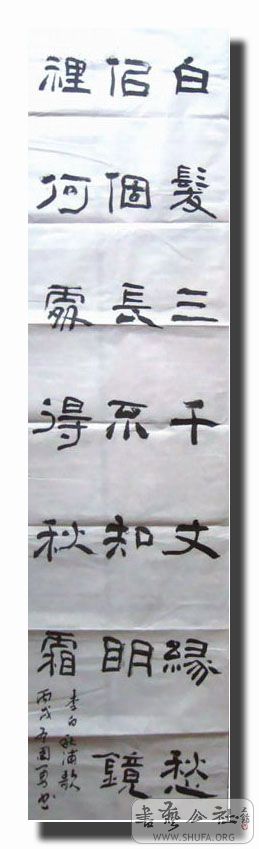 白髮三千丈緣愁
佀個長不知明鏡
裡何處得秋霜
李白秋浦歌
丙戌書
書藝公社
WWW.SHUFA.ORG